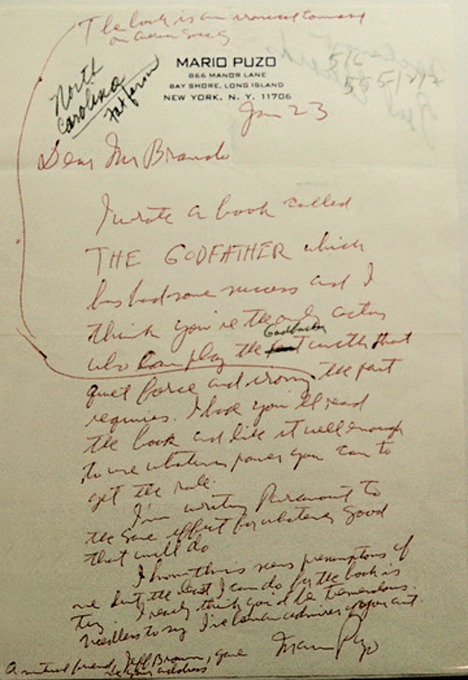 The book is an ironical comment
on American Society
North
Carolina
MARIO PUZO
866 MANOR LANE
BAY SHORE, LONG ISLAND
NEW YORK, N. Y. 11706
Jan 23
Dear Mr Brando
I wrote a book called
THE GODFATHER which
has had some success and I
think you're the only actor
Godfather
who can play the part with that
quiet force and irony the part
requires. I hope you'll read
the book and like it well enough
to use whatever power you can to
get the role.
I'm writing Paramount to
the same effect for whatever good
that will do
I know this was presumptous of
me but the least I can do for the book is
try. I really think you'd be tremendous.
Needless to say I've been an admirer of your art.
Mario Puzo
A mutual friend, Jeff Brown, gave
me your address